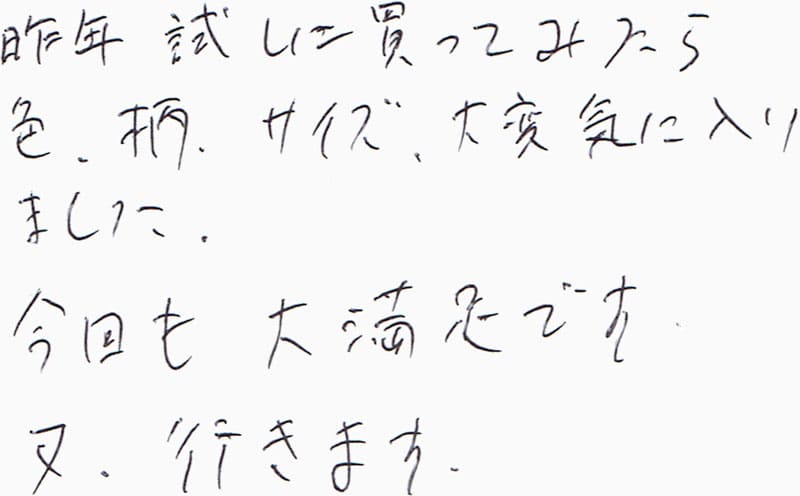 昨年 試しに買ってみたら
色、柄、サイズ、大変気に入り
ました。
今回も 大満足です。
又、行きます。